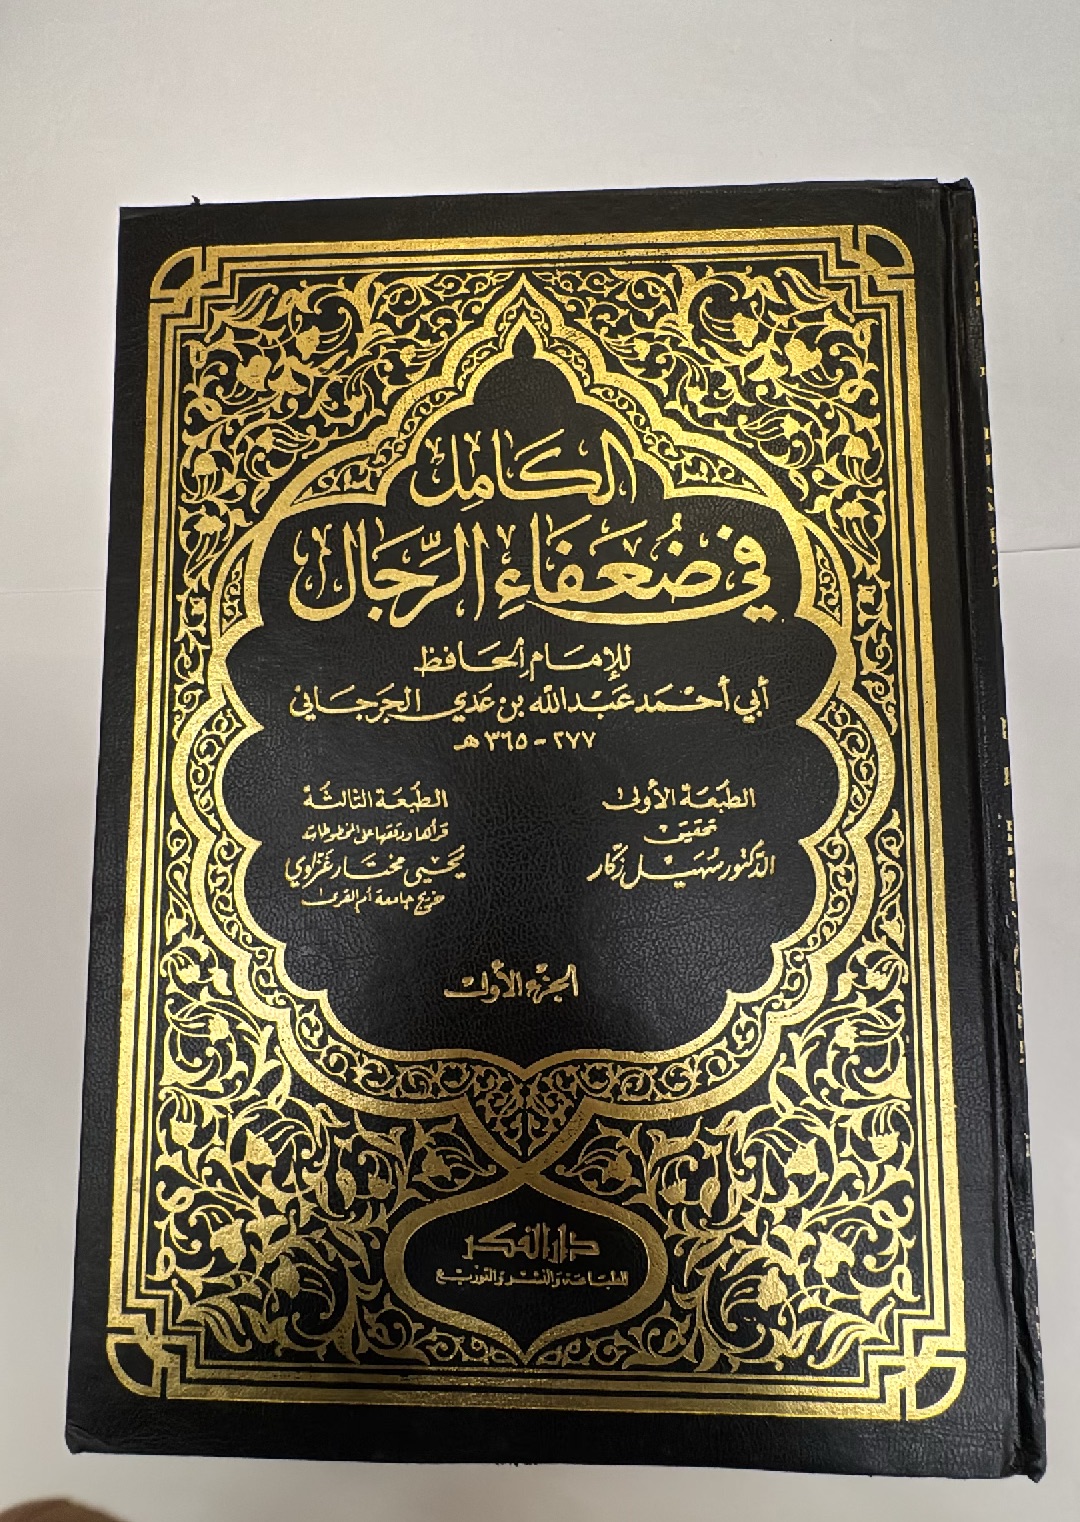 الكامل
في ضُعَفَاءِ الرِّجَال
للإمام الحافظ
أبي أحمد عبد الله بن عدي الجرجاني
٢٧٧ - ٣٦٥ هـ
الطبعة الأولى
تحقيق
الدكتور سُهَيل زكار
الطبعة الثالثة
قرأها ودققها على المخطوطات
يحيى مختار غزاوي
خريج جامعة أم القرى
الجزء الأول
دار الفكر
للطباعة والنشر والتوزيع